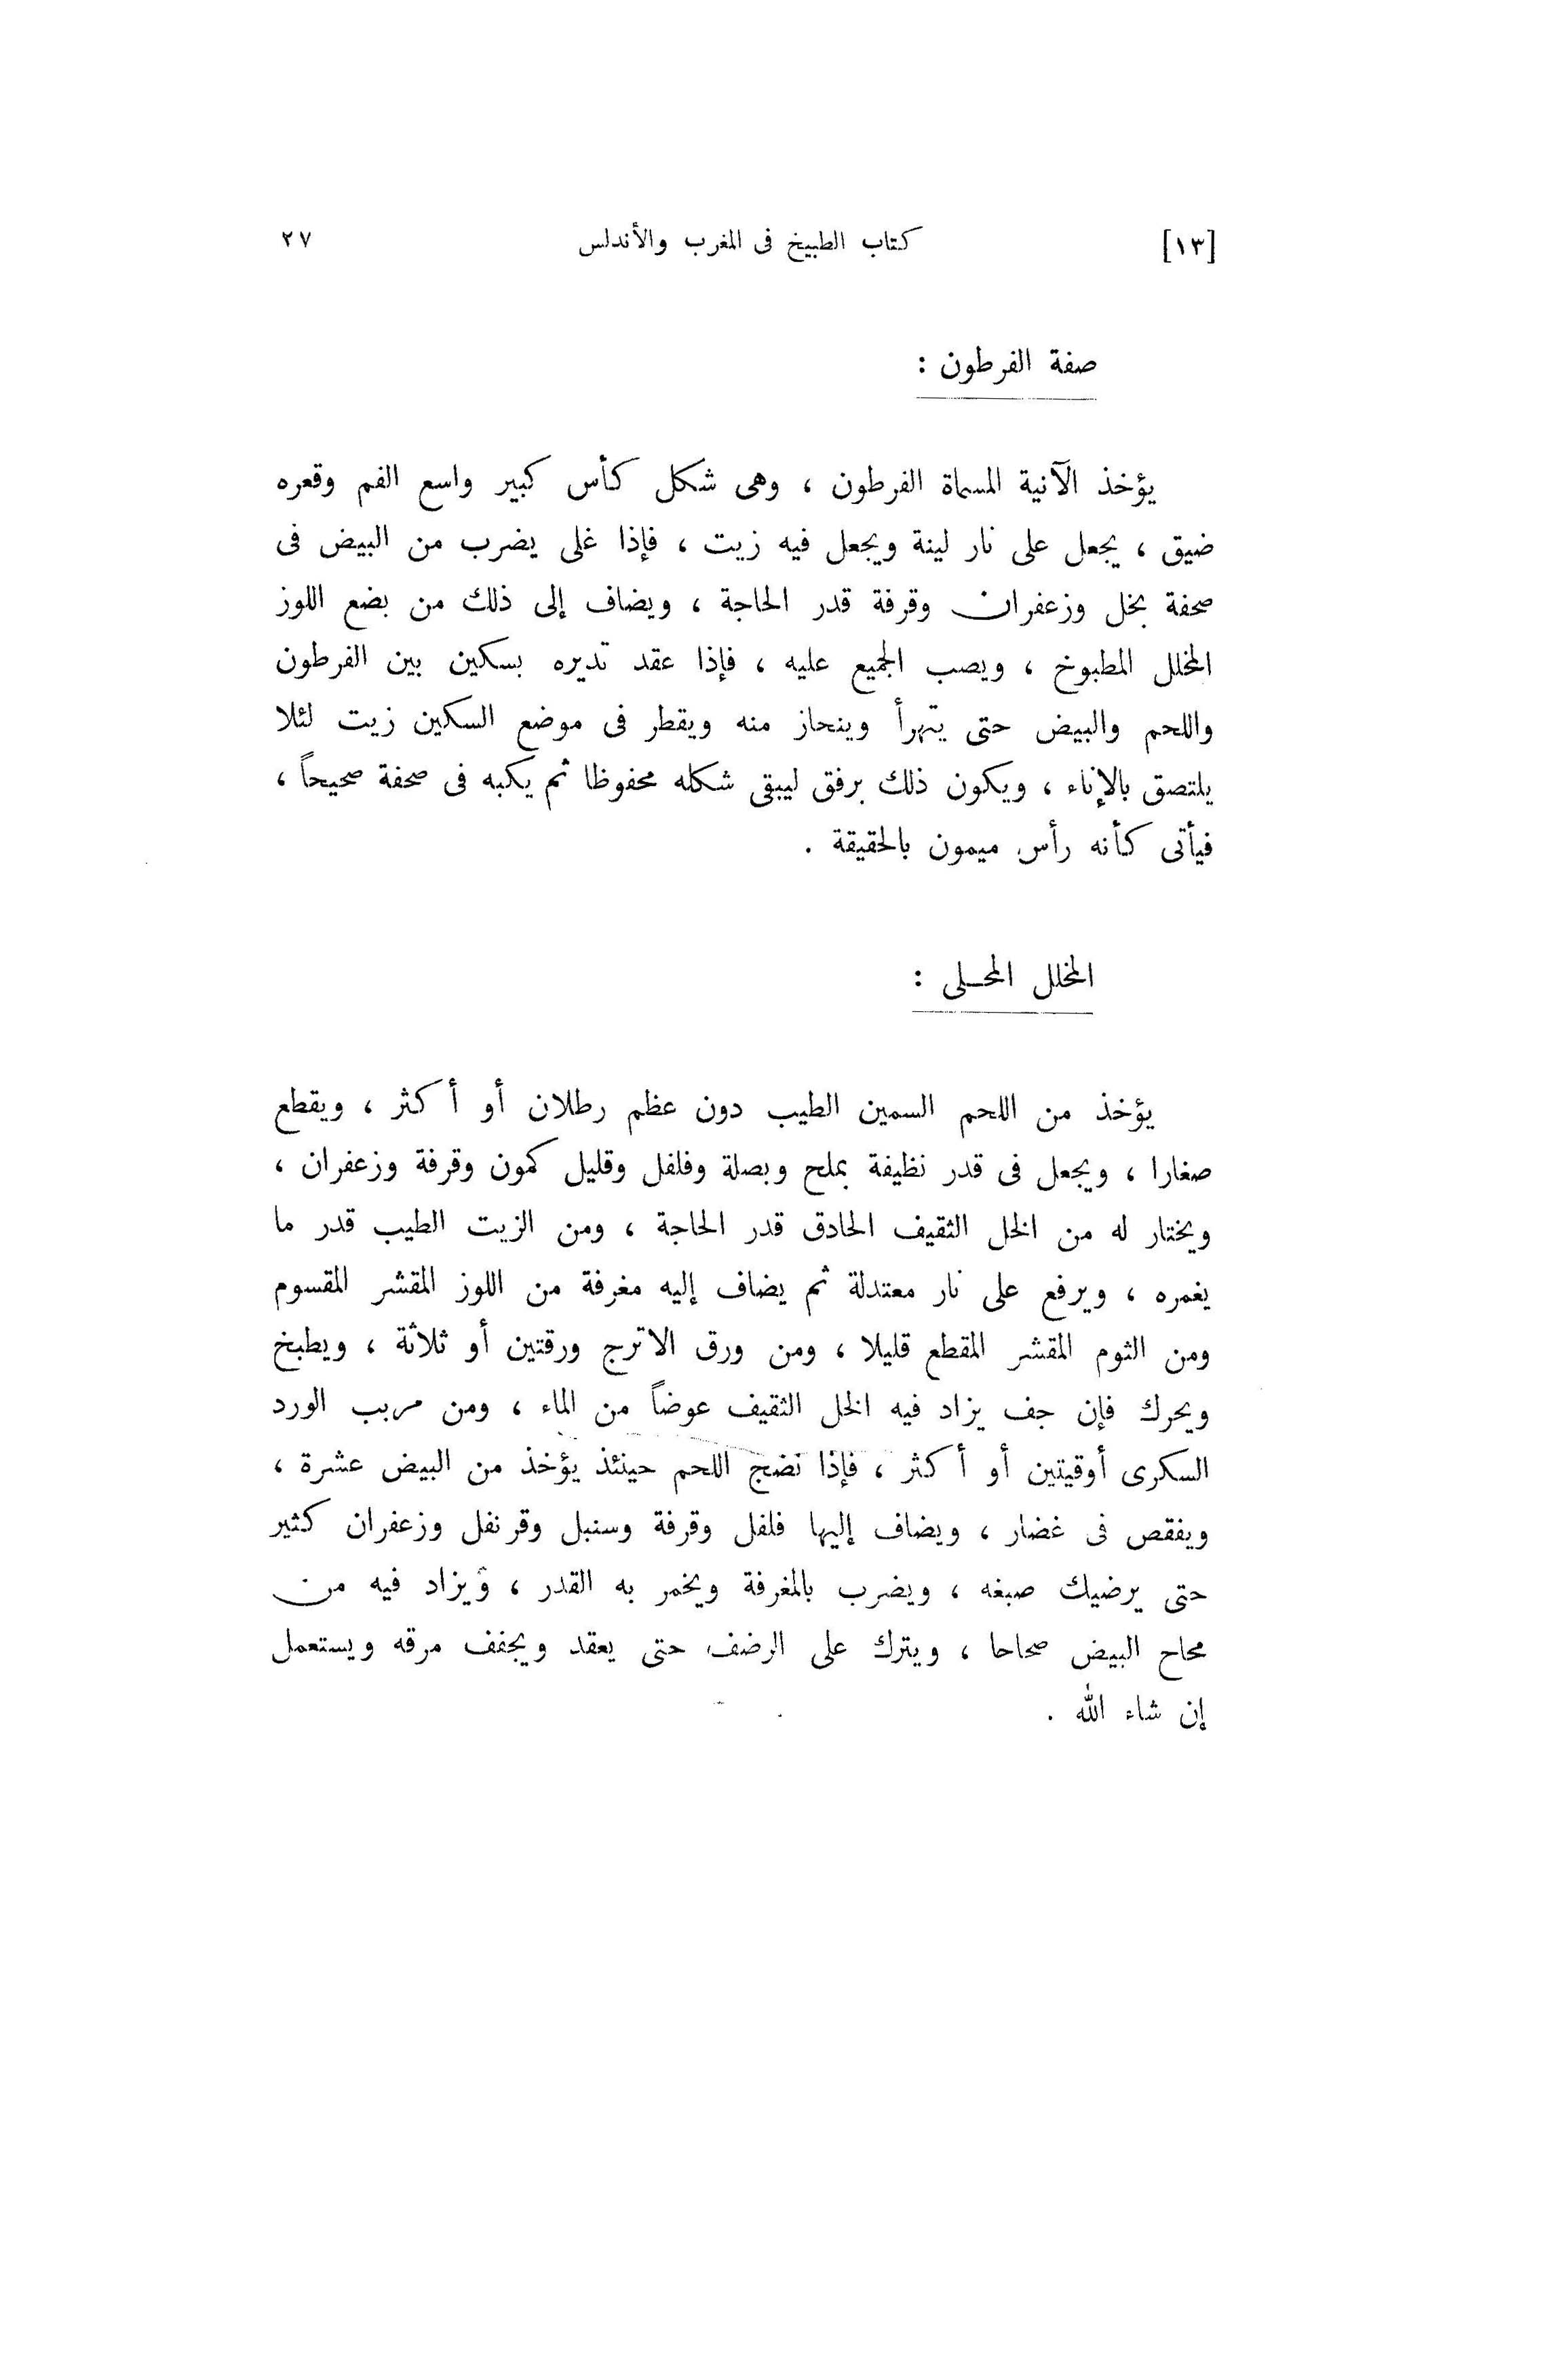 [١٣] كتاب الطبيخ فى المغرب والأندلس ٢٧
صفة الفرطون :
يؤخذ الآنية المسماة الفرطون ، وهى شكل كأس كبير واسع الفم وقعره
ضيق ، يجعل على نار لينة ويجعل فيه زيت ، فإذا غلى يضرب من البيض فى
صحفة بخل وزعفران وقرفة قدر الحاجة ، ويضاف إلى ذلك من بضع اللوز
المخلل المطبوخ ، ويصب الجميع عليه ، فإذا عقد تديره بسكين بين الفرطون
واللحم والبيض حتى يتهرأ وينحاز منه ويقطر فى موضع السكين زيت لئلا
يلتصق بالإناء ، ويكون ذلك برفق ليبقى شكله محفوظا ثم يكبه فى صحفة صحيحاً ،
فيأتى كأنه رأس ميمون بالحقيقة .
المخلل المحلى :
يؤخذ من اللحم السمين الطيب دون عظم رطلان أو أكثر ، ويقطع
صغارا ، ويجعل فى قدر نظيفة بملح وبصلة وفلفل وقليل كمون وقرفة وزعفران ،
ويختار له من الخل الثقيف الحادق قدر الحاجة ، ومن الزيت الطيب قدر ما
يغمره ، ويرفع على نار معتدلة ثم يضاف إليه مغرفة من اللوز المقشر المقسوم
ومن الثوم المقشر المقطع قليلا ، ومن ورق الاترج ورقتين أو ثلاثة ، ويطبخ
ويحرك فإن جف يزاد فيه الخل الثقيف عوضاً من الماء ، ومن مربب الورد
السكرى أوقيتين أو أكثر ، فإذا نضج اللحم حينئذ يؤخذ من البيض عشرة ،
ويفقص فى غضار ، ويضاف إليها فلفل وقرفة وسنبل وقرنفل وزعفران كثير
حتى يرضيك صبغه ، ويضرب بالمغرفة ويخمر به القدر ، ويزاد فيه من
محاح البيض صحاحا ، ويترك على الرضف حتى يعقد ويجفف مرقه ويستعمل
إن شاء الله .